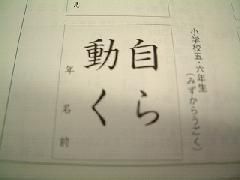 え
小学校五・六年生
(みずからうごく)
自ら
動く
年 名前